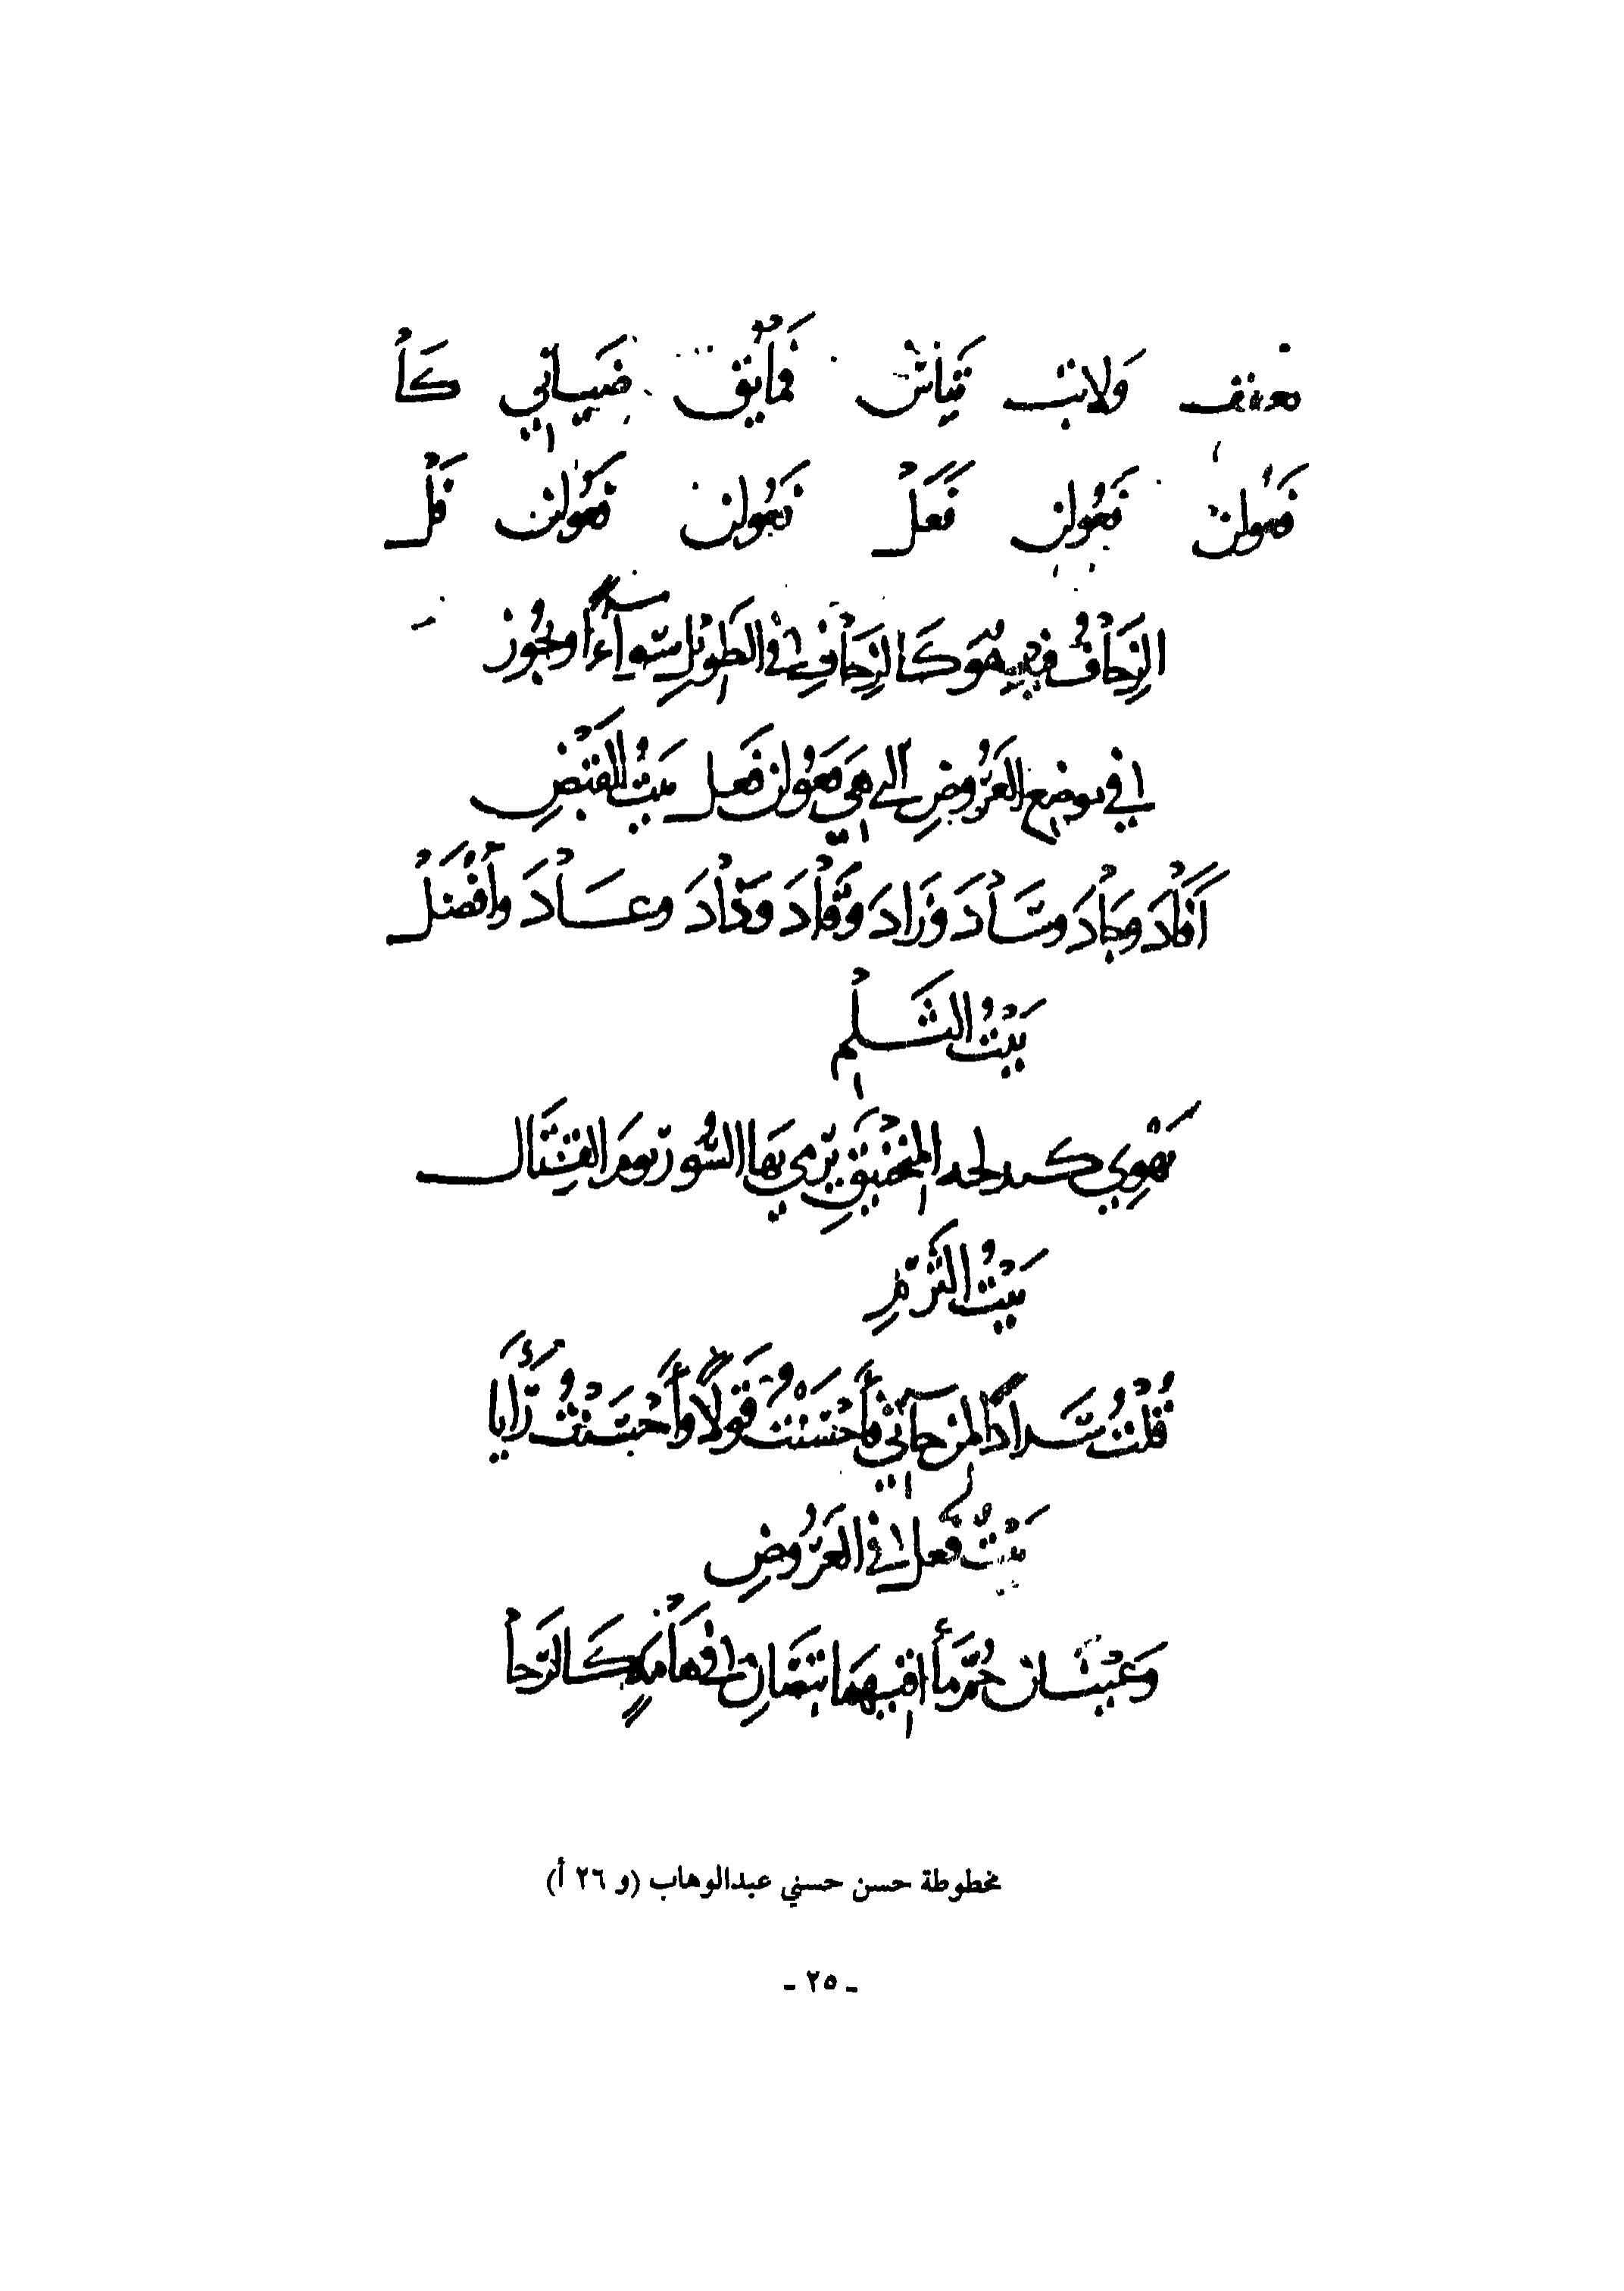 تعفف ولا تب تئاس فما يق ضيياتي كا
فعولن فعولن فعل فعولن فعولن فل
الزِحافُ فيهِ هُوَ كَالزِحَافِ في الطَوِيْلِ سَوآءًا ويجُوز
في موضع العَرُوضِ التي هِيَ فعولن فَعل بيتُ القَبْضِ
أَفَادَ وَجَادَ وسَادَ وَزَادَ وَقَادَ وَذَادَ وعَادَ وأَفْضَلْ
بَيْتُ الثَلْمِ
تَهْوِي كجندلة المنجنيقِ يَرْمِي بَها السُّورَ يومَ القِتَال
بَيْتُ الثَرْمِ
قُلْتُ سَدادًا لمن جآنِي فأَحْسَنْتُ قَوْلًا وأَحْسَنْتُ رَأْيا
بَيْتُ فَعل في العَرُوضِ
وَعَيْنَان حُرَمأ اقيهما تبصّان في هَامَةٍ كَالرَحا
مخطوطة حسن حسني عبدالوهاب (و ٢٦ أ)
- ٢٥ -